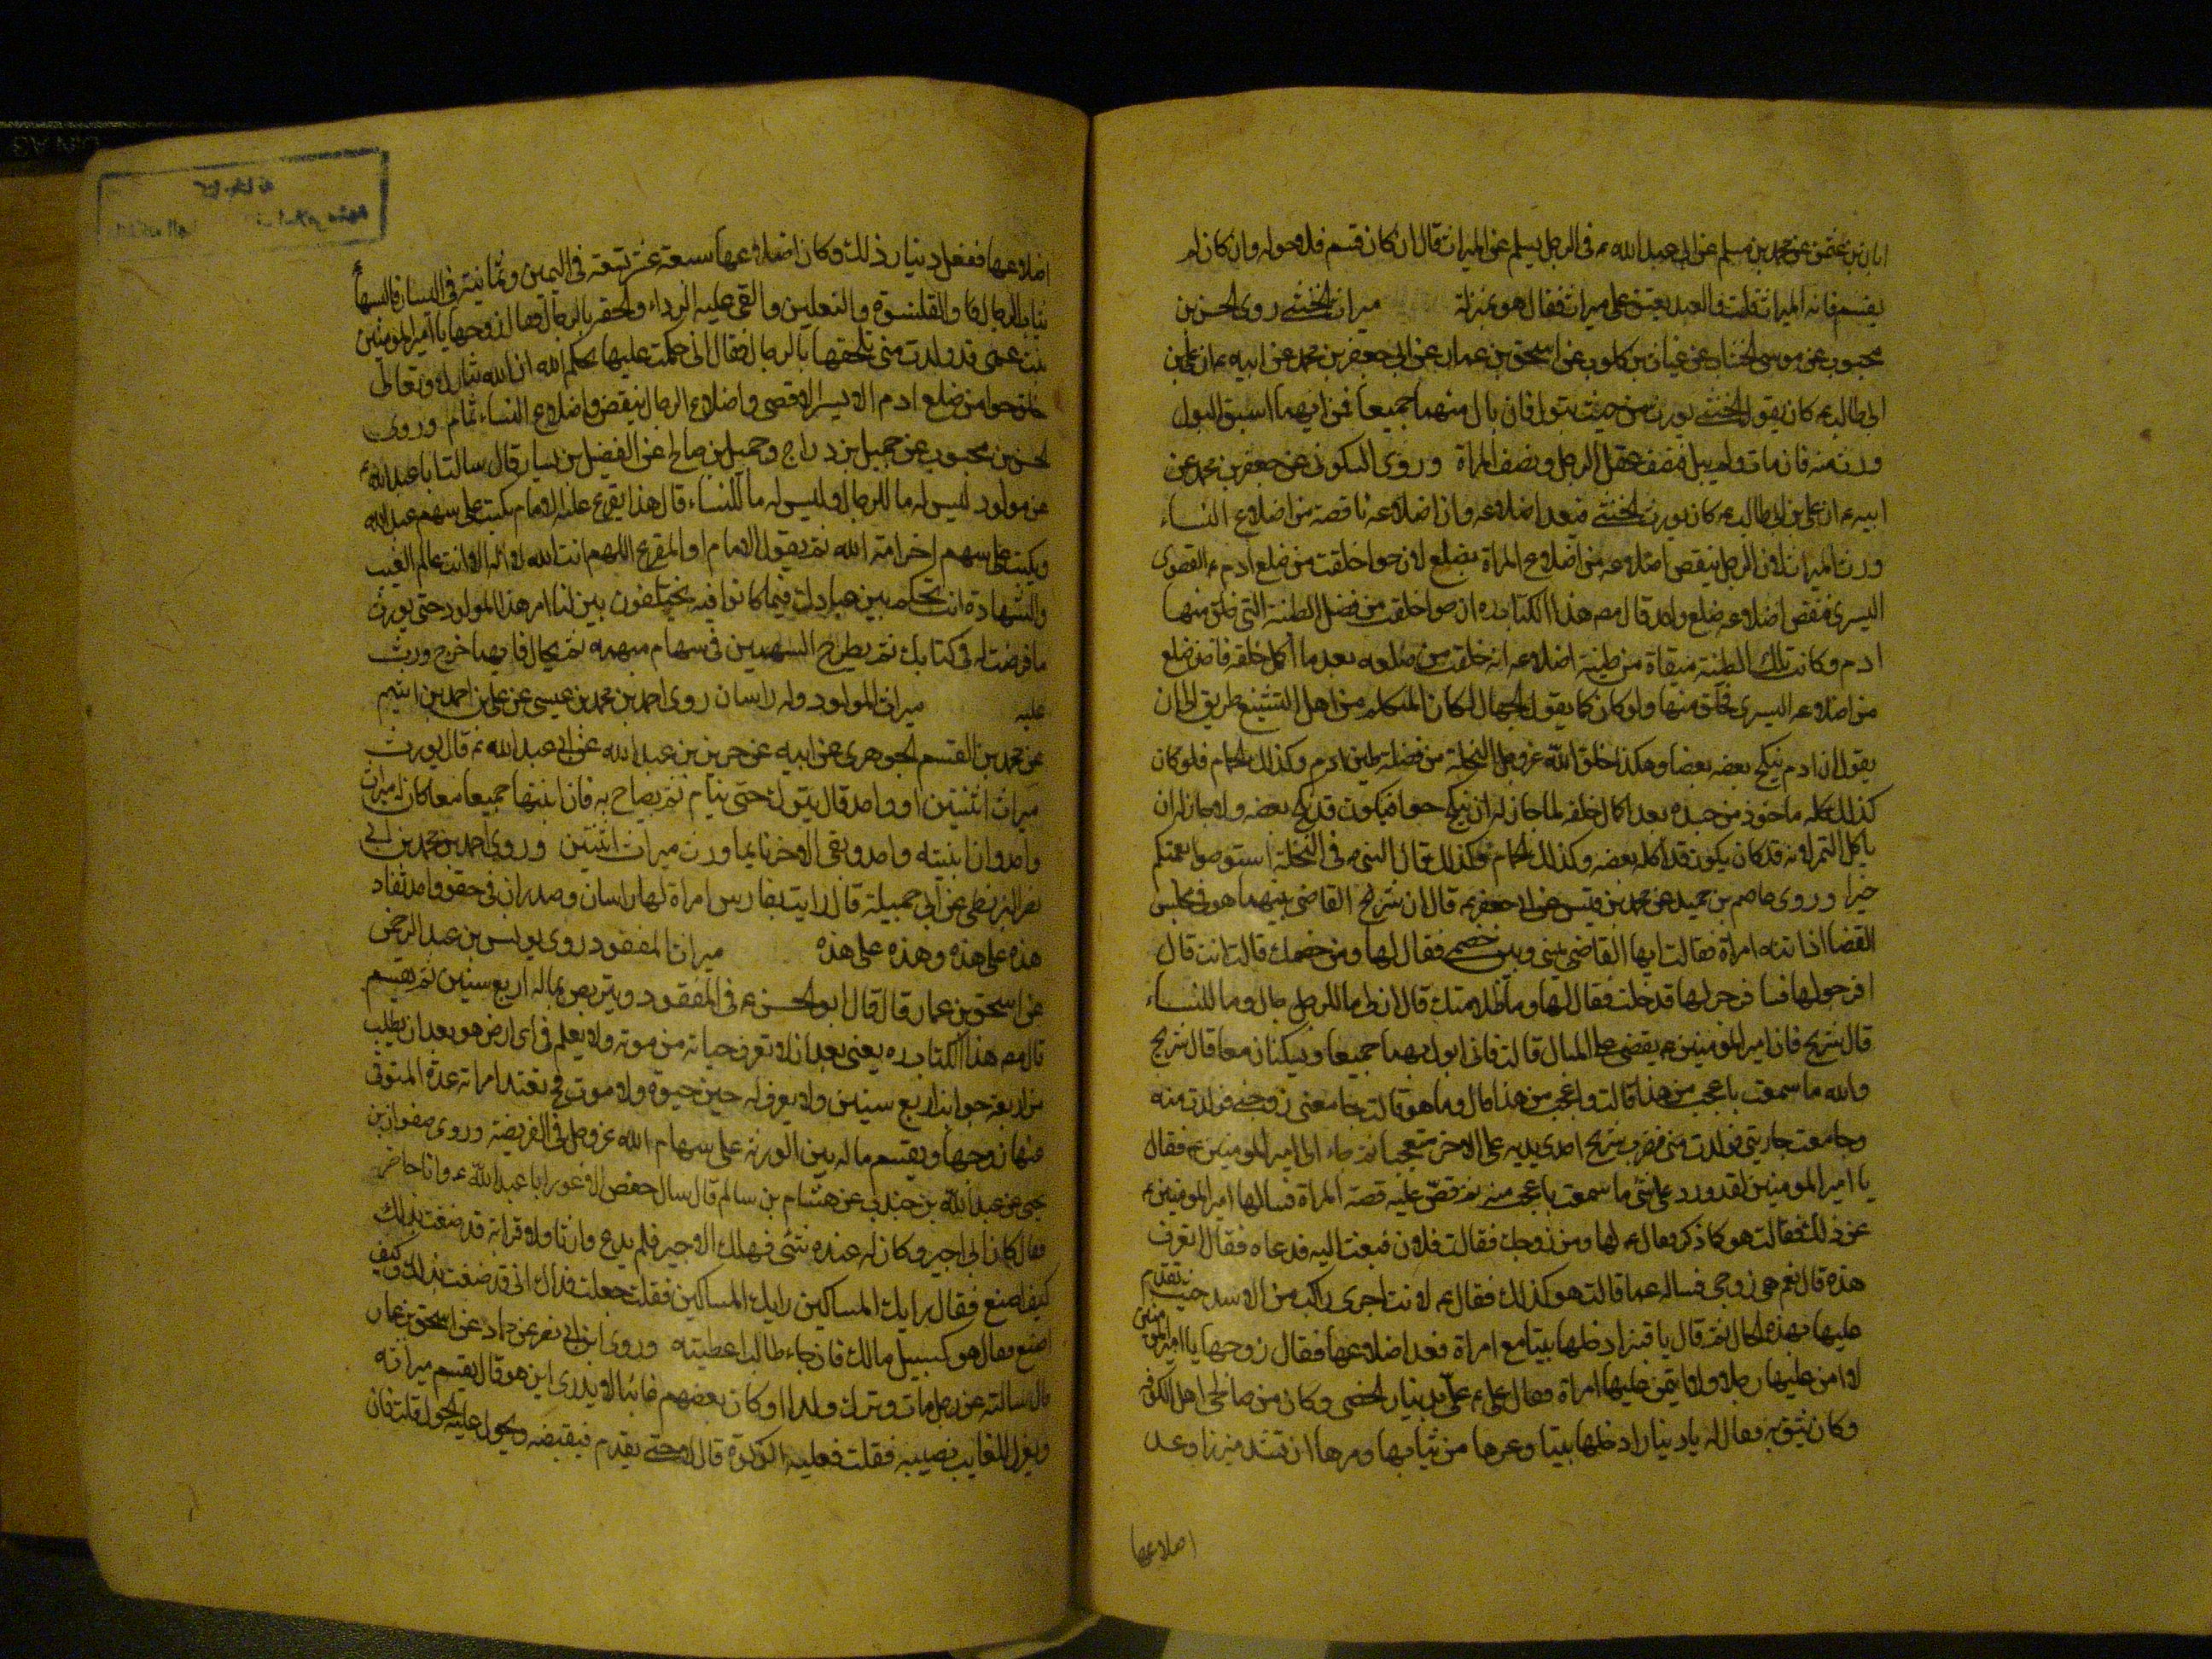 ابان بن عثمن عن محمد بن مسلم عن ابى عبد الله ع فى الرجل يسلم على الميراث قال ان كان قسم فلا حق له وان كان لم
يقسم فله الميراث قلت فالعبد يعتق على ميراث فقال هو بمنزلة ميراث الخنثى روى الحسن بن
محبوب عن موسى الخشاب عن غياث بن كلوب عن اسحق بن عمار عن ابى جعفر بن محمد عن ابيه ع ان على بن
ابى طالب ع كان يقول الخنثى يورث من حيث يبول فان بال منهما جميعا فمن ايهما سبق البول
ورث منه فان مات ولم يبل فنصف عقل الرجل ونصف المراة وروى السكونى عن جعفر بن محمد عن
ابيه ع ان على بن ابى طالب ع كان يورث الخنثى فيعد اضلاعه فان اضلاعه ناقصة من اضلاع النساء
ورث الميراث لان الرجل ينقص اضلاعه من اضلاع المراة بضلع لان حوا خلقت من ضلع ادم ع القصوى
اليسرى فنقص اضلاعه ضلع واحد قال مص هذا الكتاب ره ان حوا خلقت من فضل الطينة التى خلق منها
ادم وكانت تلك الطينة مبقاة من طينة اضلاعه انه خلقت من ضلعه بعدما اكمل خلقه فاخذ ضلع
من اضلاعه اليسرى فخلق منها ولو كان كما يقول الجهال لكان المتكلم من اهل التشنيع طريق الى ان
يقول ان ادم ينكح بعضه بعضا وهكذا خلق الله عز وجل النخلة من فضلة طين ادم وكذلك الحمام فلو كان
كذلك كله ماخوذ من جسده بعد اكمال خلقه لما جاز له ان ينكح حوا فيكون قد نكح بعضه ولا جاز له ان
ياكل التمر لانه قد كان يكون قد اكل بعضه وكذلك الحمام وكذلك قال النبى ص فى النخلة استوصوا بعمتكم
خيرا وروى عاصم بن حميد عن محمد بن قيس عن ابى جعفر ع قال ان شريح القاضى بينهما هو فى مجلس
القضا اذ اتته امراة فقالت ايها القاضى بينى وبين خصمى فقال لها ومن خصمك قالت انت قال
افرجوا لها فافرجوا لها فدخلت فقال لها وما ظلامتك قالت ان لى ما للرجال وما للنساء
قال شريح فان امير المومنين ع يقضى على المبال قالت فانى ابول بهما جميعا ويسكنان معا قال شريح
والله ما سمعت باعجب من هذا قالت واعجب من هذا قال وما هو قالت جامعنى زوجى فولدت منه
وجامعت جاريتى فولدت منى فضرب شريح احدى يديه على الاخرى متعجبا ثم جاء الى امير المومنين ع فقال
يا امير المومنين لقد ورد على شئ ما سمعت باعجب منه ثم قص عليه قصة المراة فسالها امير المومنين ع
عن ذلك فقالت هو كما ذكر فقال لها ومن زوجك فقالت فلان فبعث اليه فدعاه فقال اتعرف
هذه قال نعم هى زوجى فساله عما قالت هو كذلك فقال ع لانت اجرى من راكب الاسد حيث تقدم
عليها بهذه الحال ثم قال يا قنبر ادخلها بيتا مع امراة فعد اضلاعها فقال زوجها يا امير المومنين
لا امن عليها رجلا ولا ائتمن عليها امراة فقال على ع على بدينار الخصى وكان من صالحى اهل الكوفة
وكان يثق به فقال له يا دينار ادخلها بيتا وعرها من ثيابها ومرها ان تشد ميزرا وعد
اضلاعها
اضلاعها ففعل دينار ذلك وكان اضلاعها سبعة عشر تسعة فى اليمين وثمانية فى اليسار فالبسها ع
ثياب الرجال والقلنسوة والنعلين والقى عليه الرداء والحقه بالرجال فقال زوجها يا امير المومنين
بنت عمى قد ولدت منى تلحقها بالرجال فقال انى حكمت عليها بحكم الله ان الله تبارك وتعالى
خلق حوا من ضلع ادم الايسر الاقصى واضلاع الرجال ينقص واضلاع النساء تمام وروى
الحسن بن محبوب عن جميل بن دراج وجميل بن صالح عن الفضيل بن يسار قال سالت ابا عبد الله ع
عن مولود ليس له ما للرجال وليس له ما للنساء قال هذا يقرع عليه الامام يكتب على سهم عبد الله
ويكتب على سهم اخر امة الله ثم يقول الامام او المقرع اللهم انت الله لا اله الا انت عالم الغيب
والشهادة انت تحكم بين عبادك فيما كانوا فيه يختلفون بين لنا امر هذا المولود حتى يورث
ما فرضت له فى كتابك ثم يطرح السهمين فى سهام مبهمة ثم يجال فايهما خرج ورث
عليه ميراث المولود وله راسان روى احمد بن محمد بن عيسى عن على بن احمد بن اشيم
عن محمد بن القسم الجوهرى عن ابيه عن حريز بن عبد الله عن ابى عبد الله ع قال يورث
ميراث اثنين او واحد قال يترك حتى ينام ثم يصاح به فان انتبها جميعا معا كان له ميراث
واحد وان انتبه واحد وبقى الاخر نايما ورث ميراث اثنين وروى احمد بن محمد بن ابى
نصر البزنطى عن ابى جميلة قال رايت بفارس امراة لها راسان وصدران فى حقو واحد تغار
هذه على هذه وهذه على هذه ميراث المفقود روى يونس بن عبد الرحمن
عن اسحق بن عمار قال قال ابو الحسن ع فى المفقود ويتربص بماله اربع سنين ثم يقسم
قال مص هذا الكتاب ره يعنى بعد ان لا تعرف حياته من موته ولا يعلم فى اى ارض هو بعد ان يطلب
من اربعة جوانب اربع سنين ولا يعرف له خبر حيوة ولا موت فح تعتد امراته عدة المتوفى
عنها زوجها ويقسم ماله بين الورثة على سهام الله عز وجل فى الفريضة وروى صفوان بن
يحيى عن عبد الله بن جندب عن هشام بن سالم قال سال حفص الاعور ابا عبد الله ع وانا حاضر
فقال كان لابى اجير وكان له عنده شئ فهلك الاجير فلم يدع وارثا ولا قرابة قد ضقت بذلك
كيف اصنع فقال رايك المساكين رايك المساكين فقلت جعلت فداك انى قد ضقت بذلك وكيف
اصنع فقال هو كسبيل مالك فان جاء طالب اعطيته وروى ابن ابى نصر عن حماد عن اسحق بن عمار
قال سالته عن رجل مات وترك ولدا وكان بعضهم غائبا لا يدرى اين هو قال يقسم ميراثه
ويعزل للغايب نصيبه فقلت فعليه الزكوة قال لا حتى يقدم فيقبضه ويحول عليه الحول قلت فان